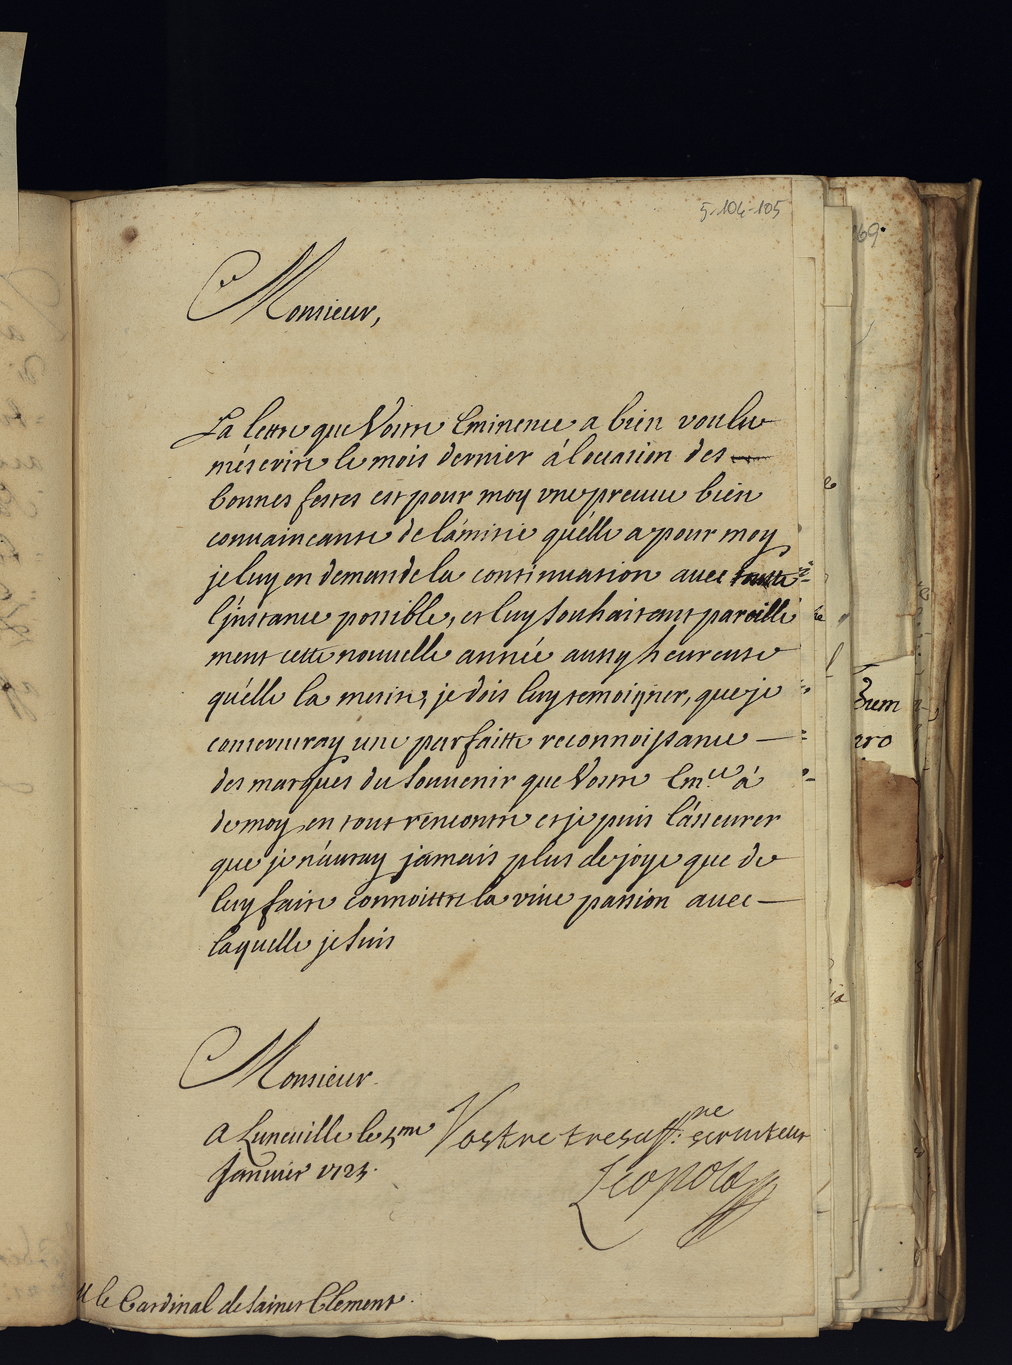 5-104-105
Monsieur,
La lettre que Vostre Eminence a bien voulu
m'éscrire le mois dernier à l'occasion des
bonnes festes est pour moy une preuve bien
convaincante de l'ámitié qu'élle a pour moy
je luy en demande la continuation avec toutte
l'jnstance possible, et luy souhaitant pareille
ment cette nouvelle année aussy heureuse
qu'élle la merite, je dois luy temoigner, que je
conserveray une parfaitte reconnoissance —
des marques du souvenir que Vostre Em.ce à
de moy en tout rencontre et je puis l'ásseurer
que je n'auray jamais plus de joye que de
luy faire connoittre la vive passion avec —
laquelle je suis
Monsieur.
A Luneville le 5me Vostre tresaff:ne serviteur
Janvier 1725.
Leopold
M le Cardinal de Saint Clement.
69
Brem
aro